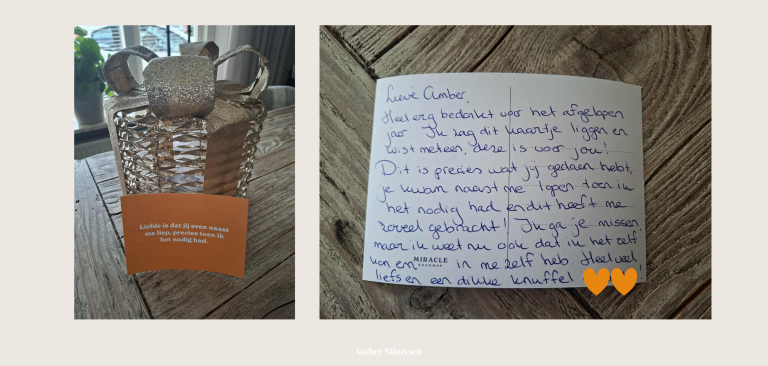 Liefde is dat jij even naast
me liep, precies toen ik
het nodig had.
Lieve Amber,
Heel erg bedankt voor het afgelopen
jaar. Ik zag dit kaartje liggen en
wist meteen, deze is voor jou!
Dit is precies wat jij gedaan hebt,
je kwam naast me lopen toen ik
het nodig had en dit heeft me
zoveel gebracht! Ik ga je missen
maar ik weet nu ook dat ik het zelf
kan en in me zelf heb. Heel veel
MIRACLE
liefs en een dikke knuffel
Amber Stinissen